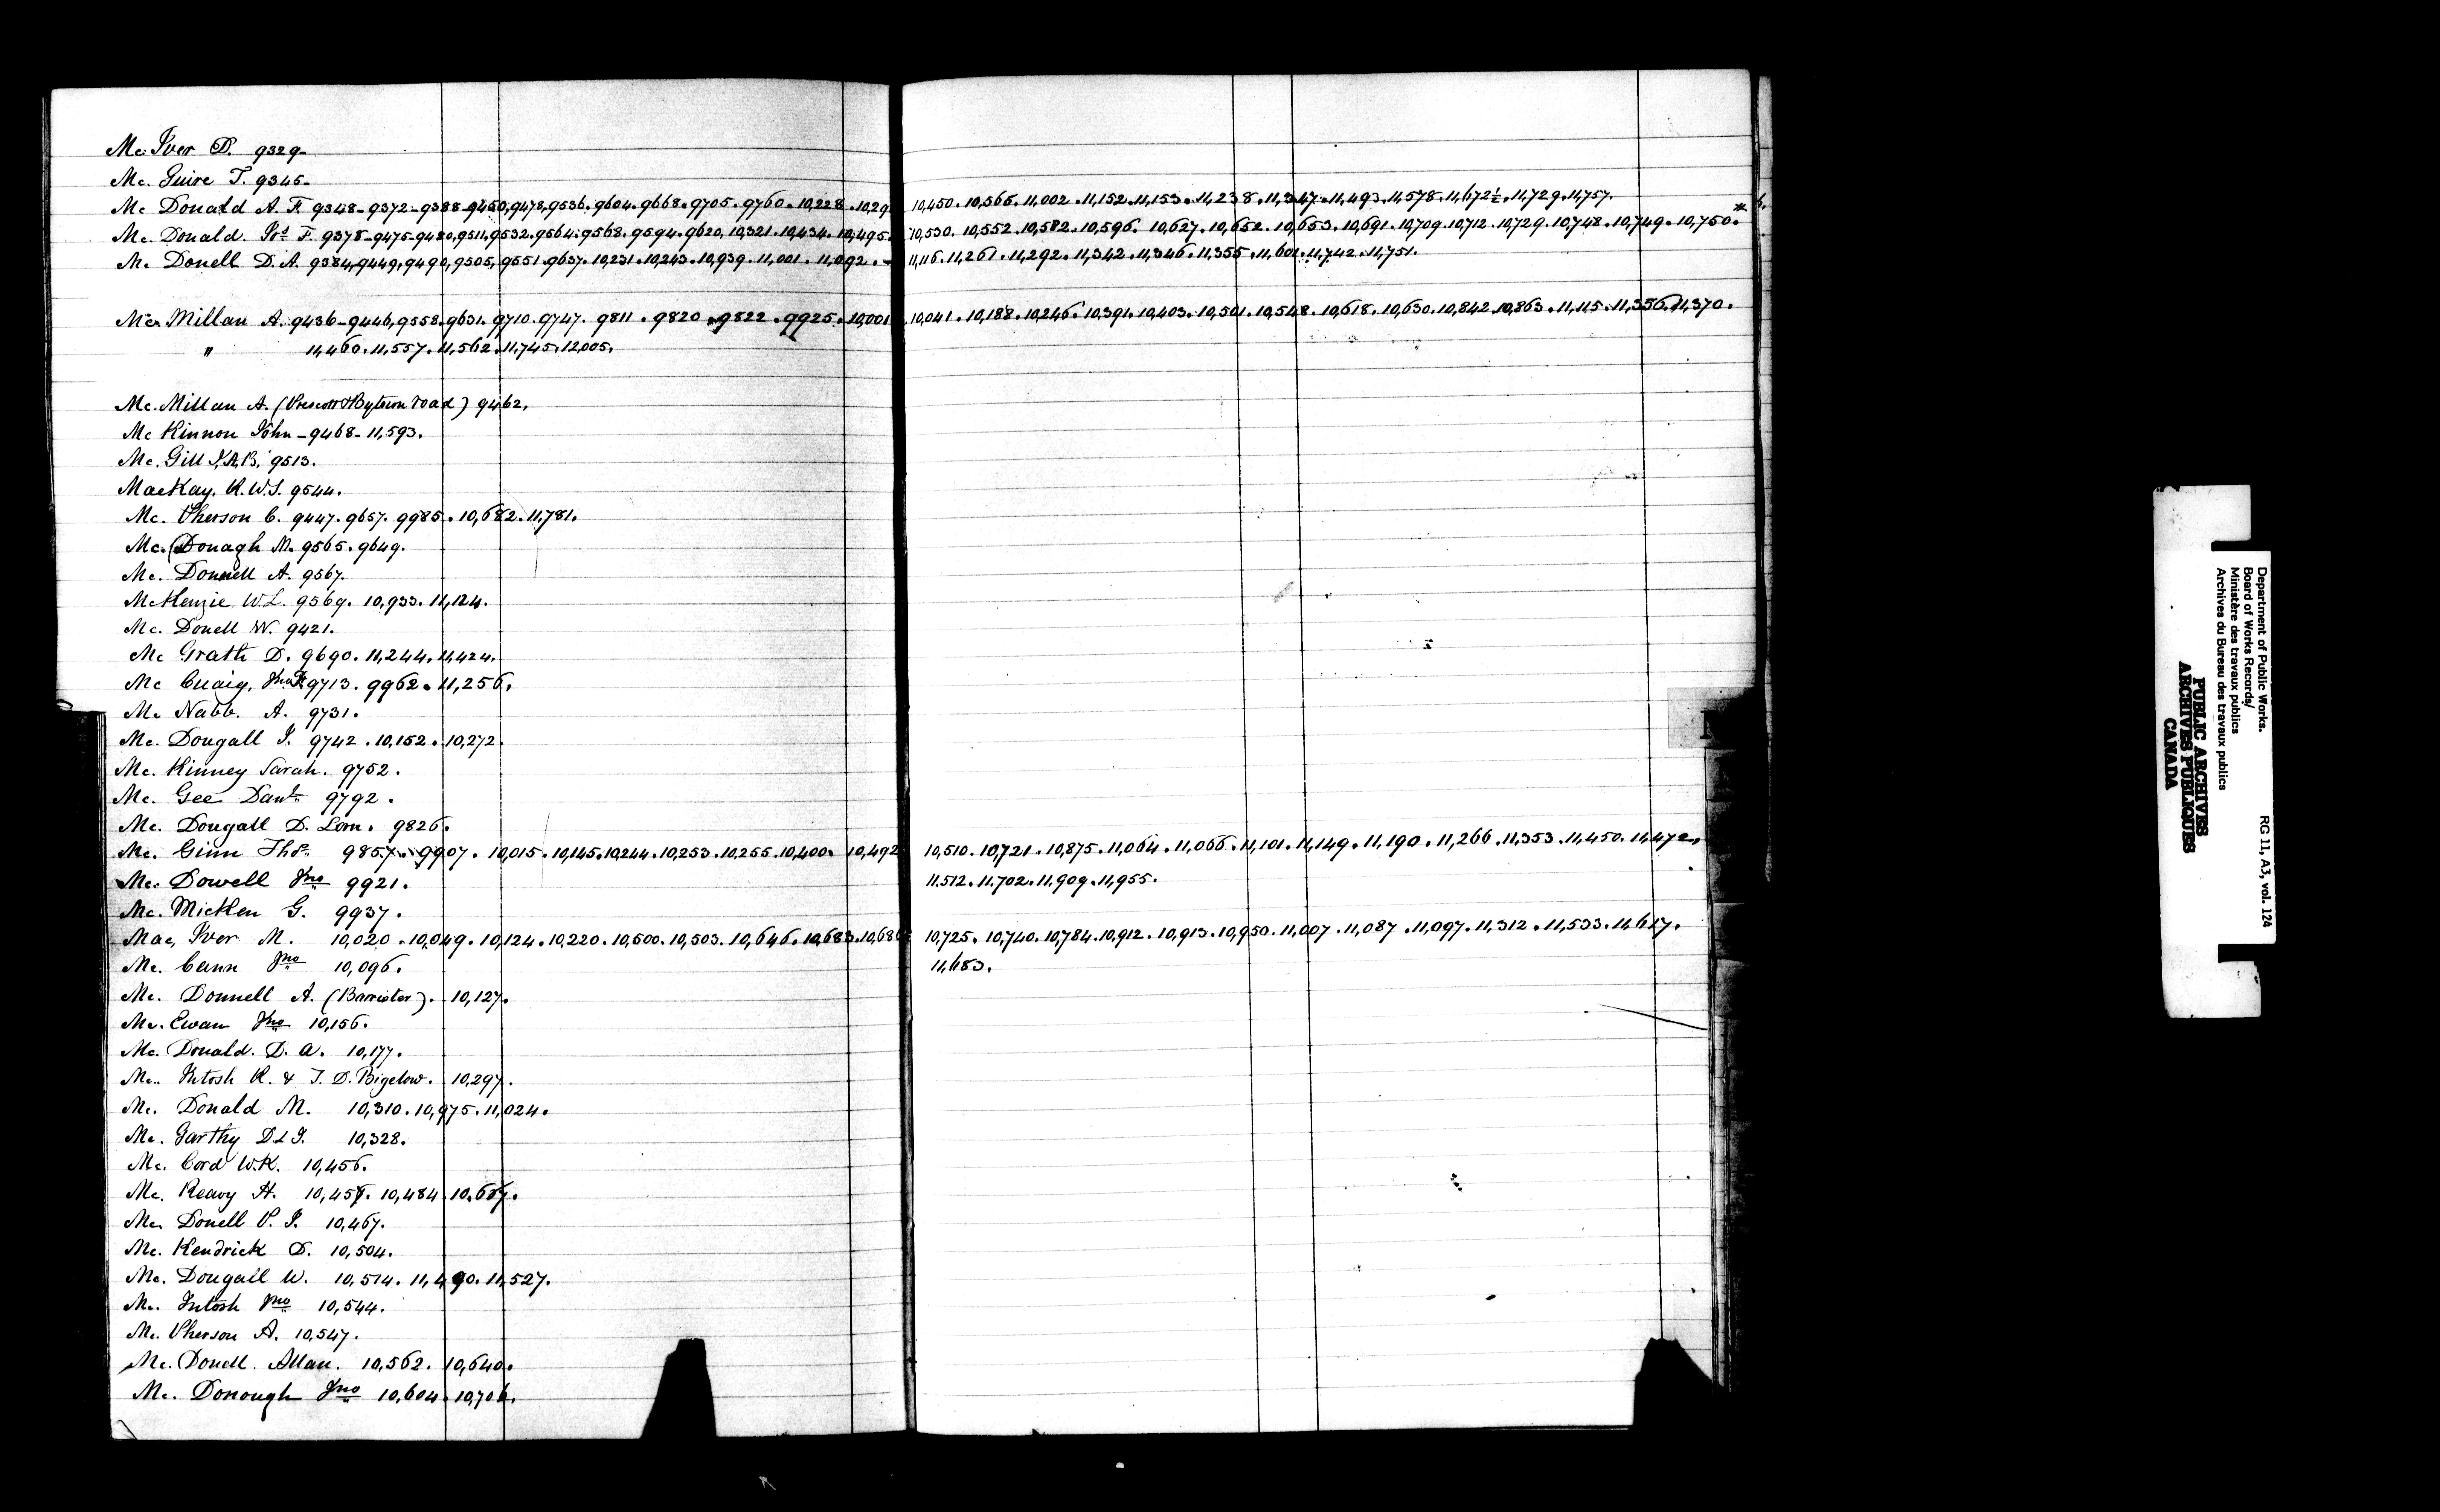 Mc. Iver D. 9329-
Mc. Guire T. 9345-
Mc Donald A. F. 9348-9372-9388-9450,9478,9536.9604.9668.9705.9760.10,228.10,29
10,450.10,565.11,002.11,152.11,153.11,238.11,347.11,493.11,578.11,672½.11,729.11,757.
Mc. Donald. F. 9378-9475-9480,9511.9532.9564.9568.9594.9620,10,321.10,434.10,495.
10,530.10,552.10,582.10,596.10,627.10,652.10,653.10,691.10,709.10,712.10,729.10,748.10,749.10,750.*
Mc. Donell D. A. 9384,9449,9490,9505,9551.9637.10,231.10,243.10,939.11,001.11,092.-
11,116.11,261.11,292.11,342.11,346.11,355.11,601.11,742.11,751.
Mc. Millan A. 9436-9446,9558.9631.9710.9747.9811.9820.9822.9925.10,001
10,041.10,188.10,246.10,391.10,403.10,501.10,548.10,618.10,630.10,842.10,863.11,115.11,356.11,370.
" 11,460.11,557.11,562.11,745.12,005.
Mc. Millan A. (Prescott & Bytown road) 9462.
Mc Kinnon John-9468-11,593.
Mc. Gill J.A.B. 9513.
MacKay. R.W.S. 9544.
Mc. Pherson C. 9447.9657.9985.10,682.11,781.
Mc. Donagh M. 9565.9649.
Mc. Donnell A. 9567.
McKenzie W.L. 9569.10,933.11,124.
Mc. Donell W. 9421.
Mc Grath D. 9690.11,244.11,424.
Mc Cuaig, Jno. 9713.9962.11,256.
Mc Nabb. A. 9731.
Mc. Dougall J. 9742.10,152.10,272
Mc. Kinney Sarah. 9752.
Mc. Gee Danl. 9792.
Mc. Dougall D. Lorn. 9826.
Mc. Ginn Thos. 9857.9907.10,015.10,145.10,244.10,253.10,255.10,400.10,492
10,510.10,721.10,875.11,064.11,066.11,101.11,149.11,190.11,266.11,353.11,450.11,472.
Mc. Dowell Jno 9921.
11.512.11.702.11.909.11,955.
Mc. Micken G. 9937.
Mac, Iver M. 10,020.10,049.10,124.10,220.10,500.10,503.10,646.10,683.10,686
10,725.10,740.10,784.10,912.10,913.10,950.11,007.11,087.11,097.11,312.11,533.11,617.
Mc. Cann Jno 10,096.
11,683.
Mc. Donnell A. (Barrister). 10,127.
Mc. Ewan Jno 10,156.
Mc. Donald. D. A. 10,177.
Mc. Intosh R. & T. D. Bigelow. 10,297.
Mc. Donald M. 10,310.10,975.11,024.
Mc. Garthy D & J. 10,328.
Mc. Cord W.K. 10,456.
Mc. Reavy H. 10,457.10,484
Mc. Donell P. J. 10,467.
Mc. Kendrick D. 10,504.
Mc. Dougall W. 10,514.11,490.11,527.
Mc. Intosh Jno 10,544.
Mc. Pherson A. 10,547.
Mc. Donell. Allan. 10,562.10,640.
Mc. Donough Jno 10,604.10,706.
Department of Public Works.
Board of Works Records/
Ministère des travaux publics
Archives du Bureau des travaux publics
RG 11, A3, vol. 124
PUBLIC ARCHIVES
ARCHIVES PUBLIQUES
CANADA